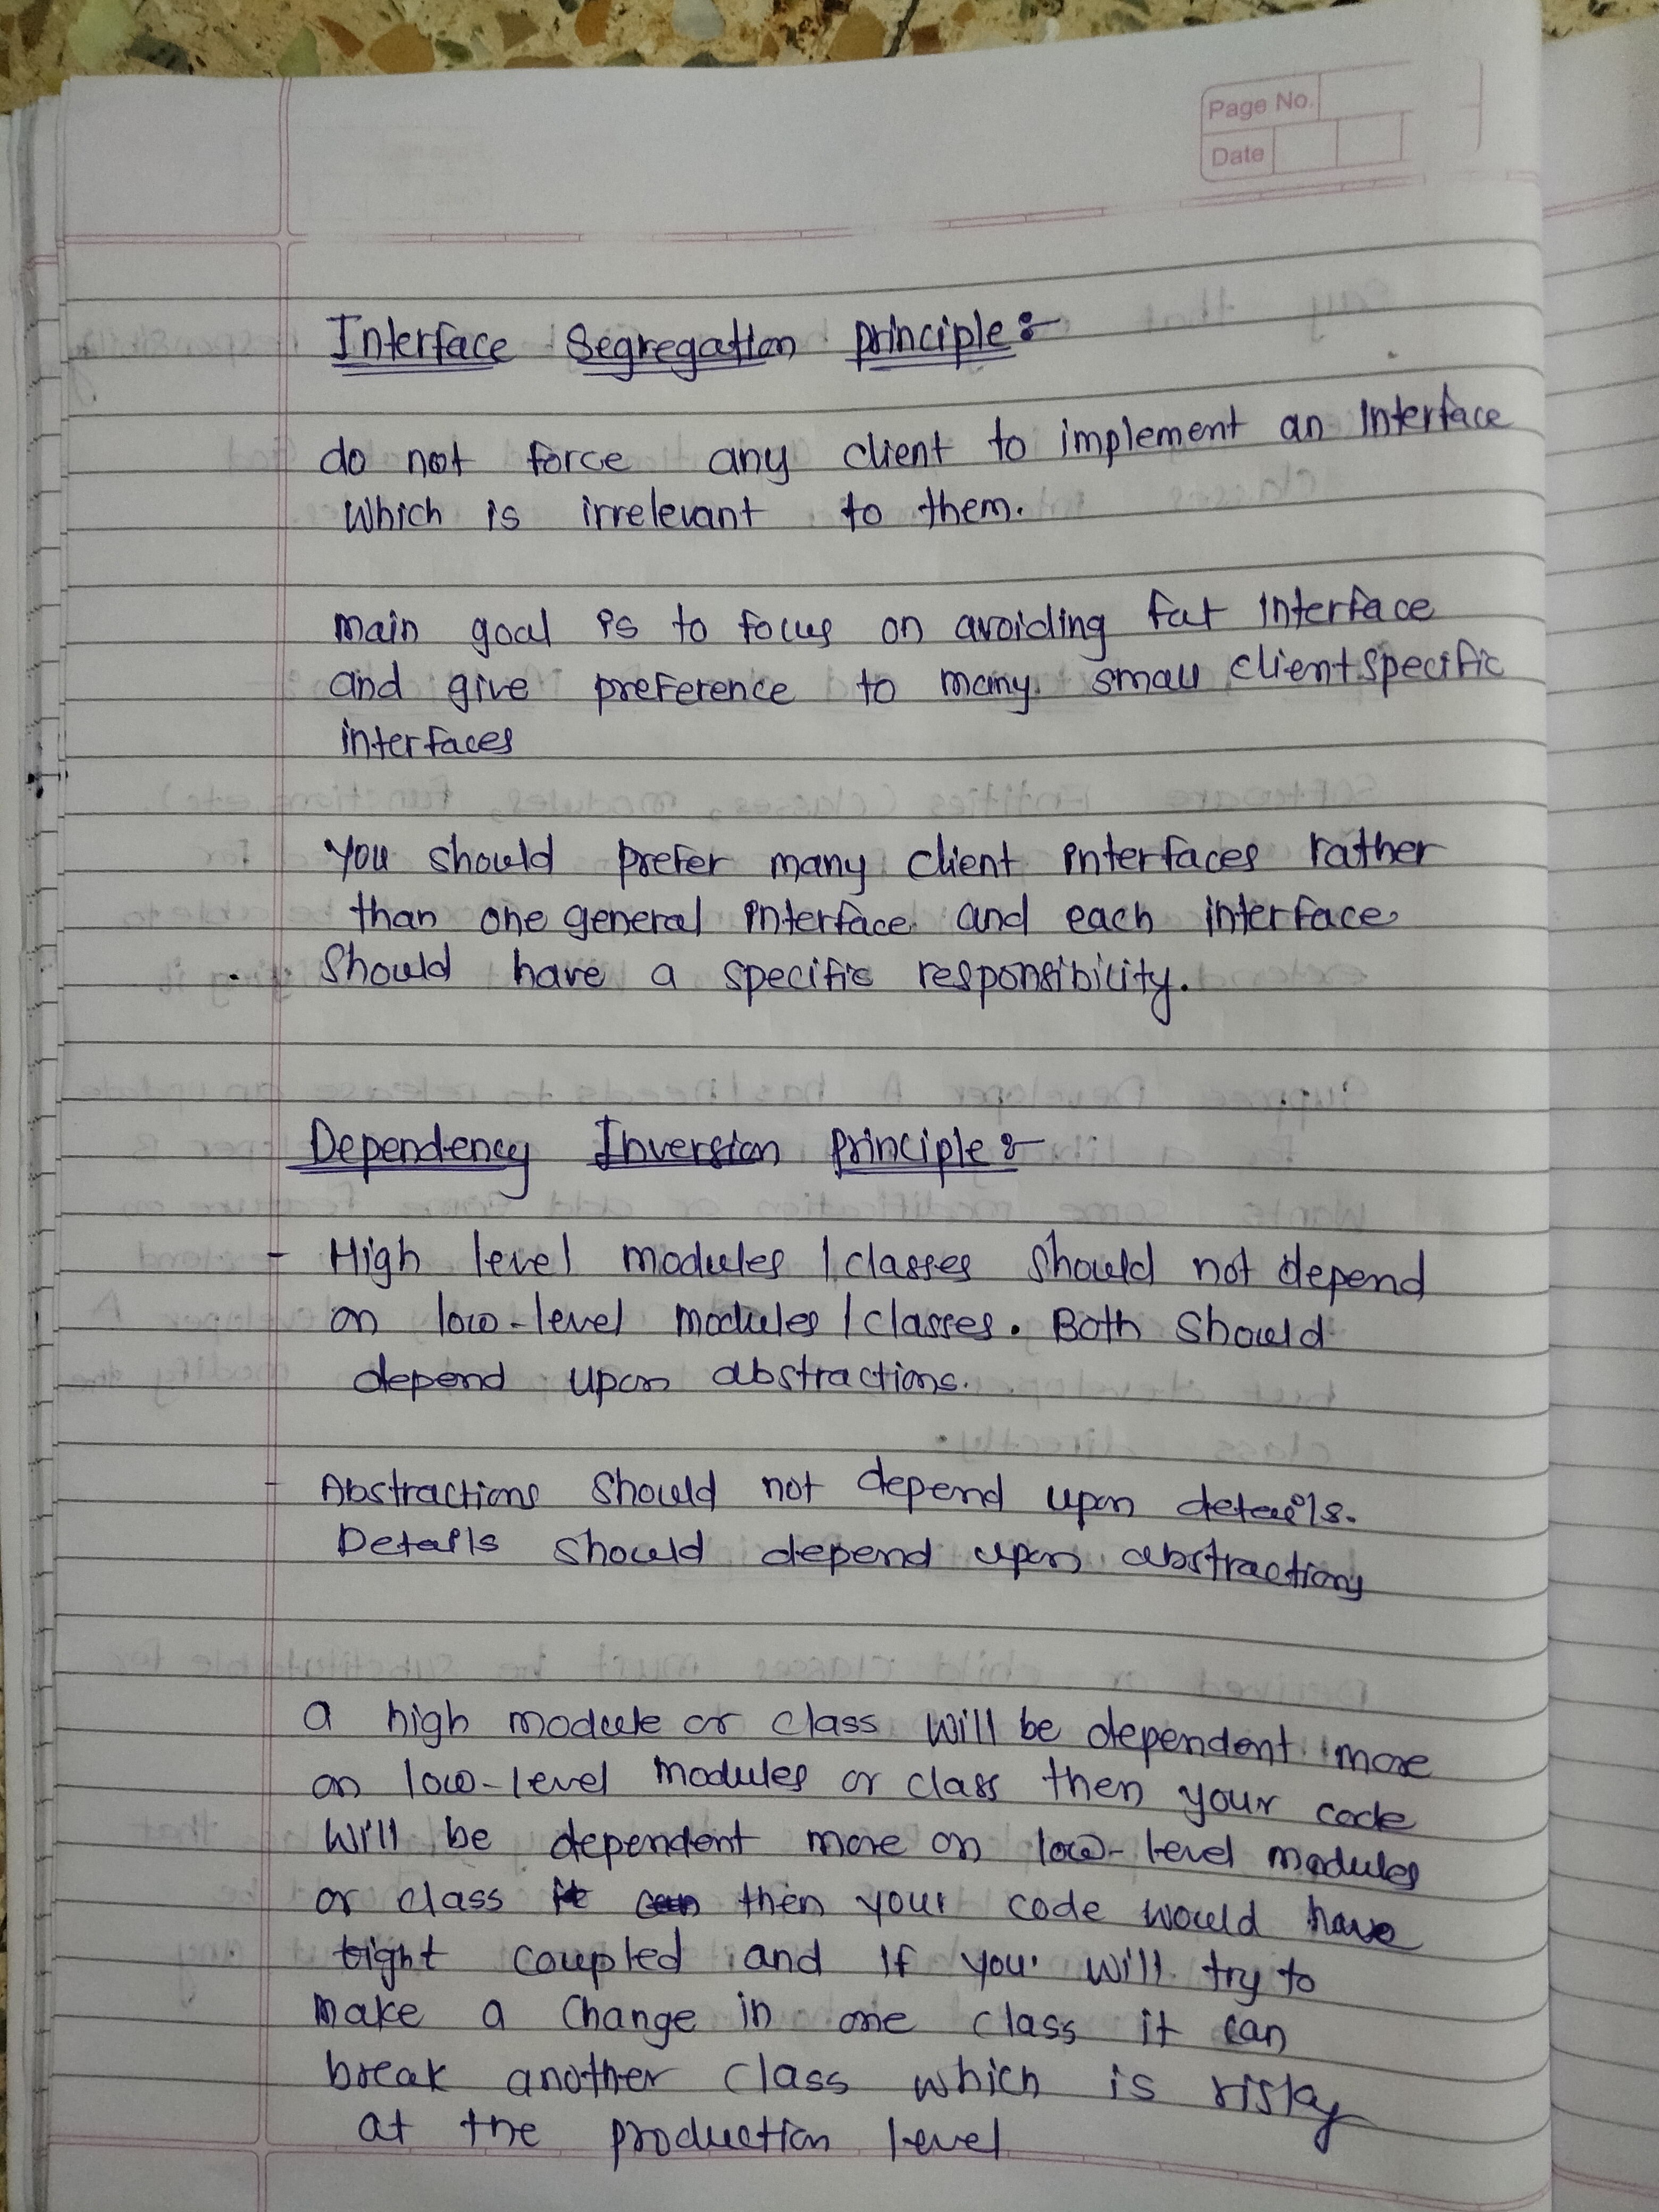 Page No.
Date
Interface Segregation principle:-
do not force any client to implement an Interface
Which is irrelevant to them.
main goal is to focus on avoiding fat interface
and give preference to many small client specific
interfaces
You should prefer many client interfaces rather
than one general interface and each interface
Should have a specific responsibility.
Dependency Inversion principle:-
- High level modules / classes should not depend
on low-level modules / classes. Both should
depend upon abstractions.
- Abstractions should not depend upon details.
Details should depend upon abstractions
a high module or class will be dependent more
on low-level modules or class then your code
will be dependent more on low-level modules
or class then your code would have
tight coupled and if you will try to
make a change in one class it can
break another class which is risky
at the production level